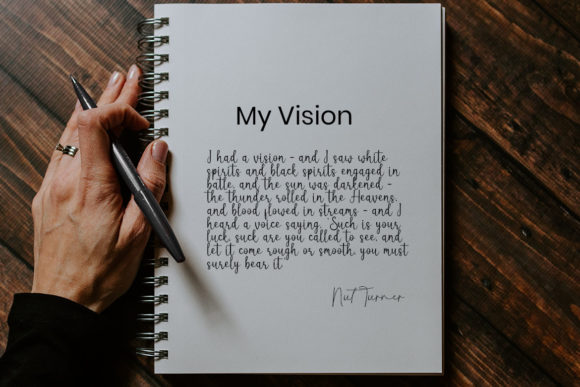 My Vision
I had a vision - and I saw white
spirits and black spirits engaged in
battle, and the sun was darkened -
the thunder rolled in the Heavens,
and blood flowed in streams - and I
heard a voice saying, 'Such is your
luck, suck are you called to see, and
let it come rough or smooth, you must
surely bear it.'
Nut Turner